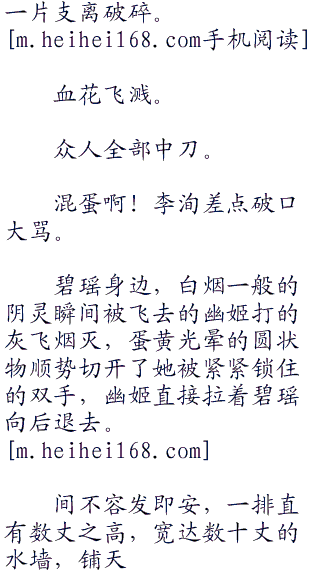 一片支离破碎。
[m.heihei168.com手机阅读]
血花飞溅。
众人全部中刀。
混蛋啊！李洵差点破口
大骂。
碧瑶身边，白烟一般的
阴灵瞬间被飞去的幽姬打的
灰飞烟灭，蛋黄光晕的圆状
物顺势切开了她被紧紧锁住
的双手，幽姬直接拉着碧瑶
向后退去。
[m.heihei168.com]
间不容发即安，一排直
有数丈之高，宽达数十丈的
水墙，铺天